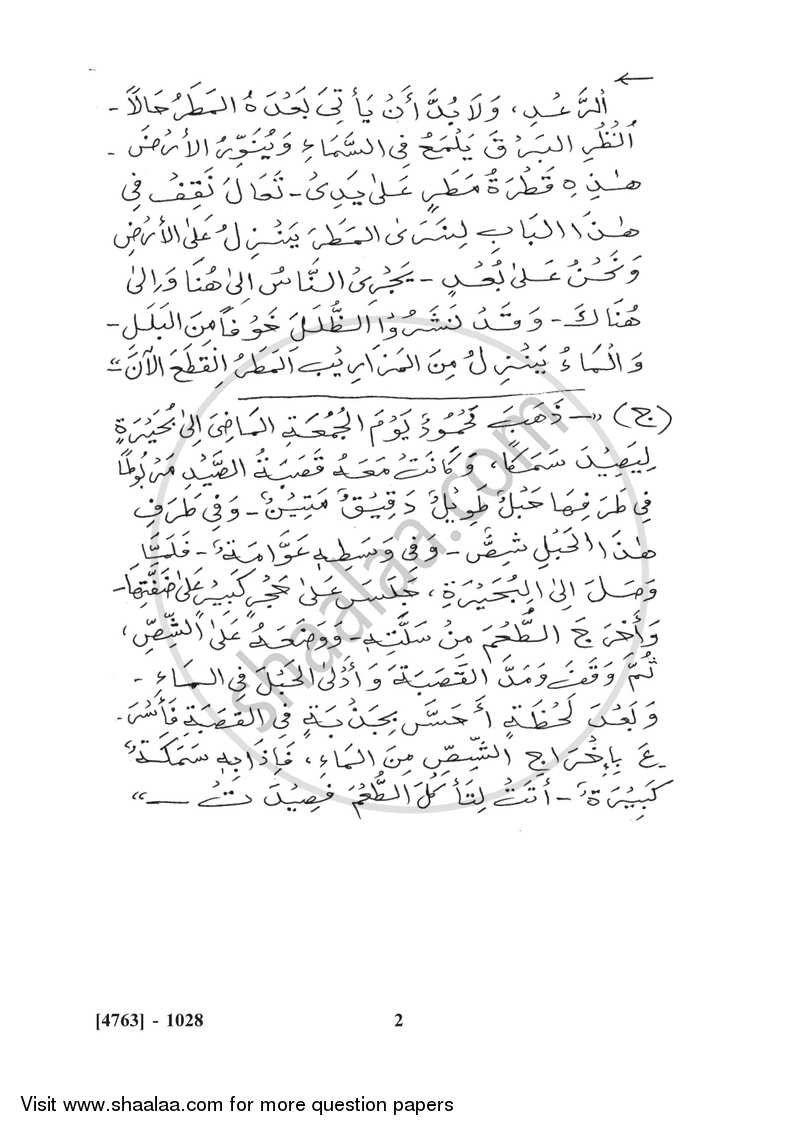 ←
الرَّعْدِ، وَلَا بُدَّ أَنْ يَأْتِيَ بَعْدَهُ المَطَرُ حَالًا -
أُنْظُرِ البَرْقَ يَلْمَعُ فِى السَّمَاءِ وَيُنَوِّرُ الأَرْضَ -
هٰذِهِ قَطْرَةُ مَطَرٍ عَلىٰ يَدِىْ - تَعَالَ نَقِفُ فِي
هٰذَا البَابِ لِنَرَى المَطَرَ يَنْزِلُ عَلَى الأَرْضِ
وَنَحْنُ عَلىٰ بُعْدٍ - يَجْرِىْ النَّاسُ اِلىٰ هُنَا وَاِلىٰ
هُنَاكَ - وَقَدْ نَشَرُوْا الظُّلَلَ خَوْفاً مِنَ البَلَلِ -
وَالمَاءُ يَنْزِلُ مِنَ المَزَارِيْبِ المَطَرُ اِنْقَطَعَ الآنَ "
(ج) " - ذَهَبَ مَحْمُوْدٌ يَوْمَ الجُمُعَةِ المَاضِىَ اِلىٰ بُحَيْرَةٍ
لِيَصِيْدَ سَمَكًا، وَكَانَتْ مَعَهُ قَصَبَةُ الصَّيْدِ مَرْبُوْطًا
فِي طَرَفِهَا حَبْلٌ طَوِيْلٌ دَقِيْقٌ مَتِيْنٌ - وَفِي طَرَفِ
هٰذَا الحَبْلِ شِصٌّ - وَفِي وَسَطِهٖ عَوَّامَةٌ - فَلَمَّا
وَصَلَ اِلىٰ البُحَيْرَةِ، جَلَسَ عَلىٰ حَجَرٍ كَبِيْرٍ عَلىٰ ضَفَّتِهَا -
وَأَخْرَجَ الطُّعْمَ مِنْ سَلَّتِهٖ - وَوَضَعَهُ عَلَى الشِّصِّ،
ثُمَّ وَقَفَ وَمَدَّ القَصَبَةَ وَأَدْلىٰ الحَبْلَ فِي المَاءِ -
وَبَعْدَ لَحْظَةٍ أَحَسَّ بِجَذْبَةٍ فِي القَصَبَةِ فَأَسْرَ -
عَ بِإِخْرَاجِ الشِّصِّ مِنَ المَاءِ، فَاِذَا بِهٖ سَمَكَةٌ
كَبِيْرَةٌ - أَتَتْ لِتَأْكُلَ الطُّعْمَ فَصِيْدَتْ - "
shaalaa.com
[4763] - 1028
2
Visit www.shaalaa.com for more question papers